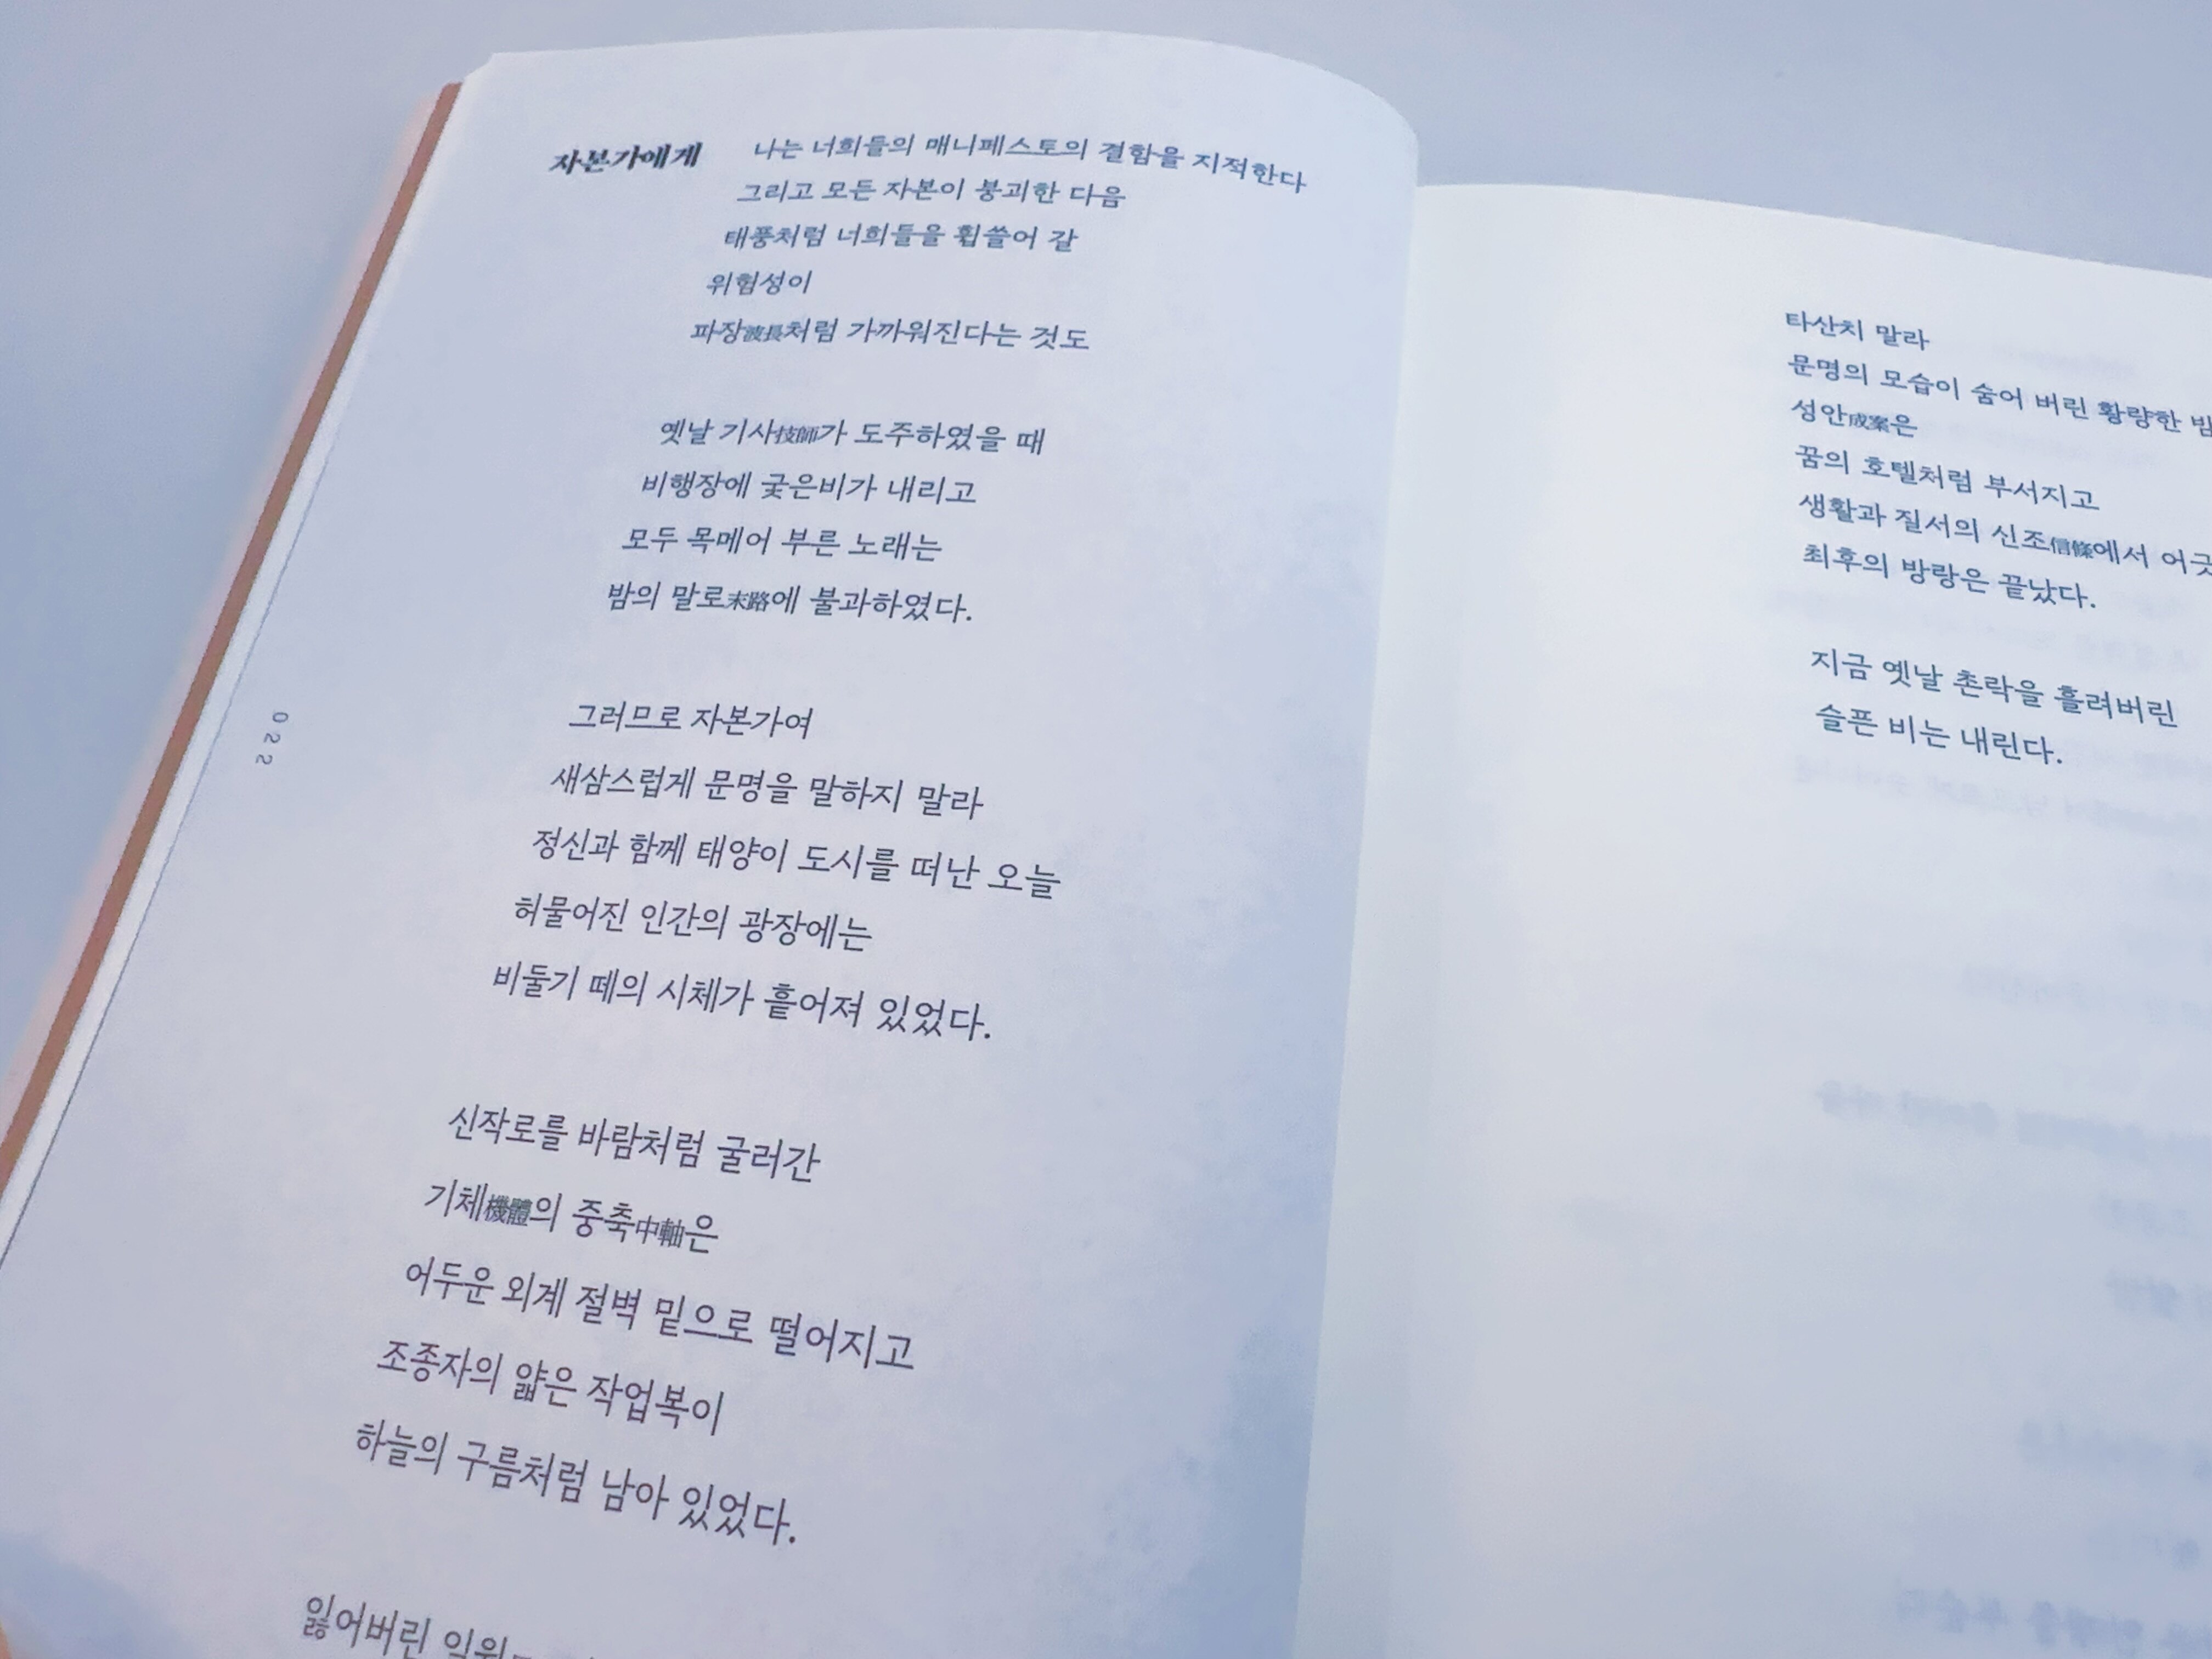 자본가에게
나는 너희들의 매니페스토의 결함을 지적한다
그리고 모든 자본이 붕괴한 다음
태풍처럼 너희들을 휩쓸어 갈
위험성이
파장波長처럼 가까워진다는 것도
옛날 기사技師가 도주하였을 때
비행장에 궂은비가 내리고
모두 목메어 부른 노래는
밤의 말로末路에 불과하였다.
그러므로 자본가여
새삼스럽게 문명을 말하지 말라
정신과 함께 태양이 도시를 떠난 오늘
허물어진 인간의 광장에는
비둘기 떼의 시체가 흩어져 있었다.
신작로를 바람처럼 굴러간
기체機體의 중축中軸은
어두운 외계 절벽 밑으로 떨어지고
조종자의 얇은 작업복이
하늘의 구름처럼 남아 있었다.
잃어버린
022
타산치 말라
문명의 모습이 숨어 버린 황량한 밤
성안成案은
꿈의 호텔처럼 부서지고
생활과 질서의 신조信條에서
최후의 방랑은 끝났다.
지금 옛날 촌락을 흘려버린
슬픈 비는 내린다.